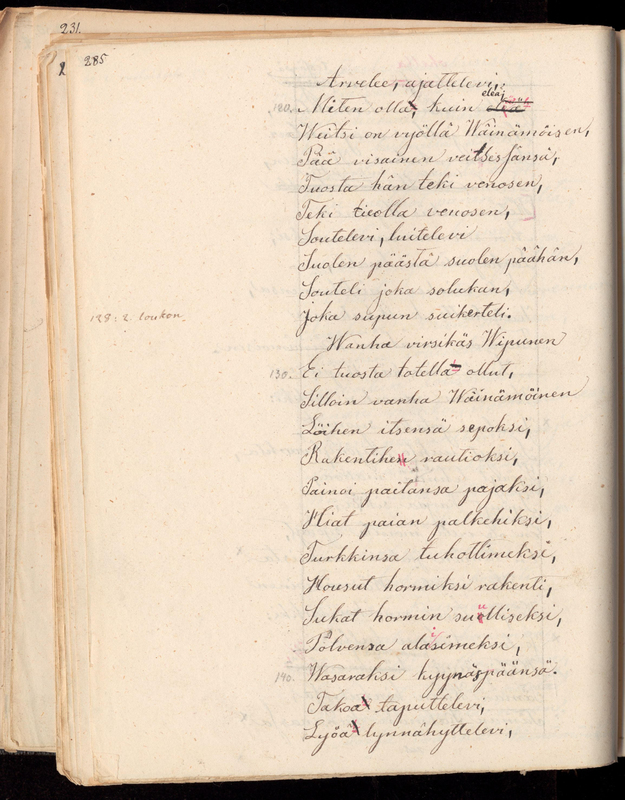 231.
285
Arvelee, ajattelevi,:
120. Miten olla, kuin eleä
Weitsi on vyöllä Wäinämöisen,
Pää visainen veitsessänsä,
Tuosta hän teki venosen,
Teki tieolla venosen,
Soutelevi, luitelevi
Suolen päästä suolen päähän,
Souteli joka solukan,
128: 2. loukon.
Joka sapun suikerteli.
Wanha virsikäs Wipunen
130. Ei tuosta totella ollut,
Silloin vanha Wäinämöinen
Löihen itsensä sepoksi,
Rakentihen rautioksi,
Painoi paitansa pajaksi,
Hiat paian palkehiksi,
Turkkinsa tuhottimeksi,
Housut hormiksi rakenti,
Sukat hormin suulliseksi,
Polvensa alasimeksi,
140. Wasaraksi kyynäspäänsä.
Takoa taputtelevi,
Lyöä lynnähyttelevi,